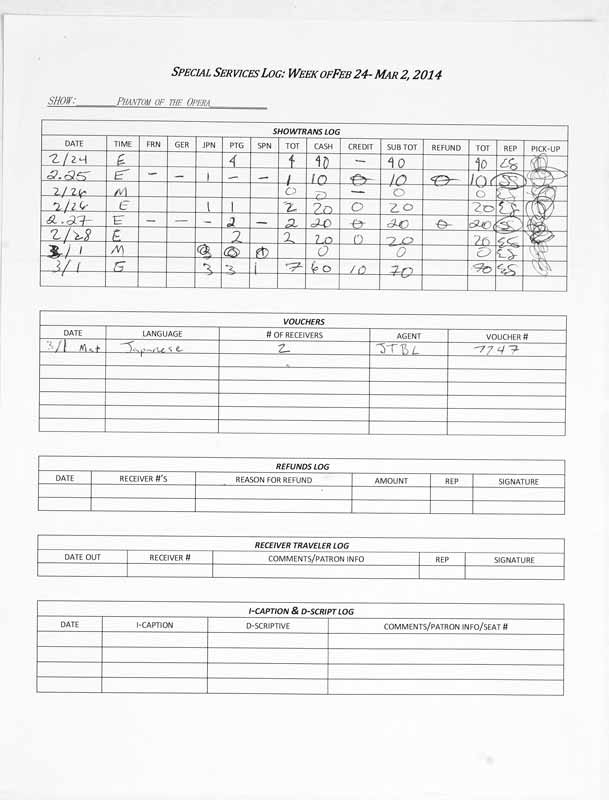 SPECIAL SERVICES LOG: WEEK OF FEB 24- MAR 2, 2014
SHOW: PHANTOM OF THE OPERA
SHOWTRANS LOG
DATE TIME FRN GER JPN PTG SPN TOT CASH CREDIT SUB TOT REFUND TOT REP PICK-UP
2/24 E 4 4 40 - 40 40
2.25 E - - 1 - - 1 10 0 10 0 10 SS
2/26 M 0 0 - 0 0
2/26 E 1 1 2 20 0 20 20
2.27 E - - - 2 - 2 20 0 20 0 20 SS
2/28 E 2 2 20 0 20 20
3/1 M 0 0 0 0
3/1 E 3 3 1 7 60 10 70 70
VOUCHERS
DATE LANGUAGE # OF RECEIVERS AGENT VOUCHER #
3/1 Mat Japanese 2 JTBL 7747
REFUNDS LOG
DATE RECEIVER #'S REASON FOR REFUND AMOUNT REP SIGNATURE
RECEIVER TRAVELER LOG
DATE OUT RECEIVER # COMMENTS/PATRON INFO REP SIGNATURE
I-CAPTION & D-SCRIPT LOG
DATE I-CAPTION D-SCRIPTIVE COMMENTS/PATRON INFO/SEAT #